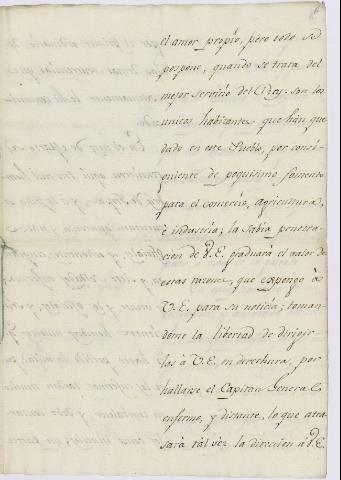 el amor propio, pero todo se
pospone, quando se trata del
mejor servicio del Rey: son los
unicos habitantes que han que
dado en este Pueblo, por consi-
guiente de poquisimo fomento
para el comercio, agricultura,
é industria; la sabia penetra-
cion de V.E. graduará el valor de
estas razones, que expongo à
V.E. para su noticia; toman-
dome la libertad de dirigir
las à V.E. en derechura, por
hallarse el Capitan General
enfermo, y distante, lo que atra
sará tal vez la direccion à V.E.